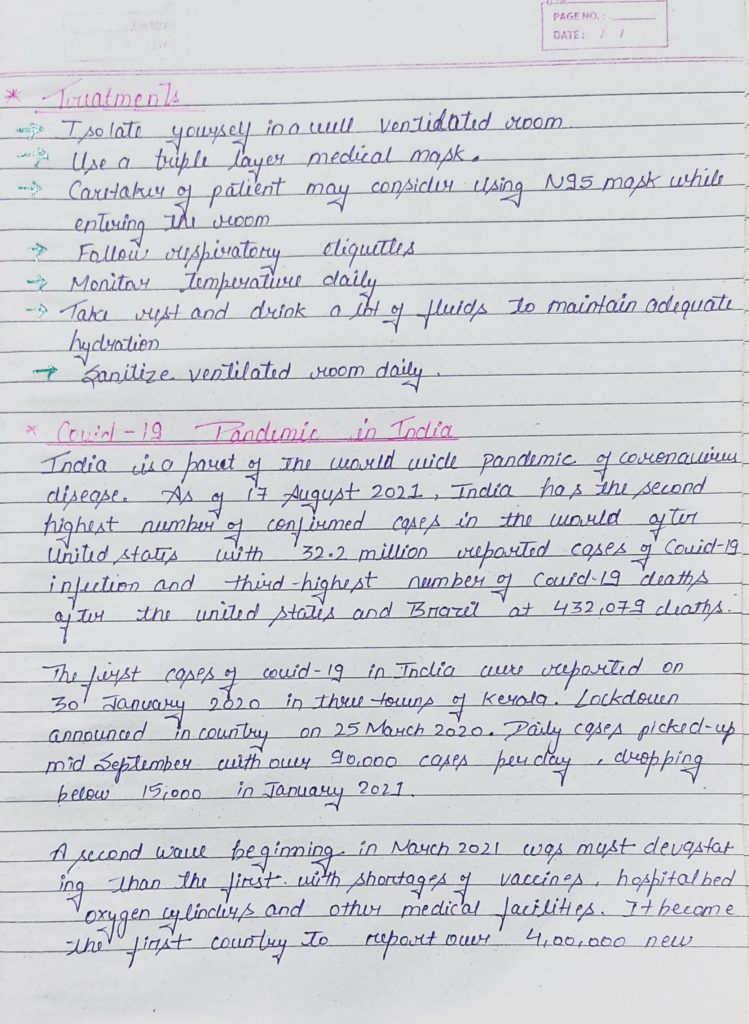 PAGE NO.:
DATE: / /
* Treatments
→ Isolate yourself in a well ventidated room.
→ Use a triple layer medical mask.
→ Caretaker of patient may consider using N95 mask while
entering the room
→ Follow respiratory etiquettes
→ Monitor temperature daily
→ Take rest and drink a lot of fluids to maintain adequate
hydration
→ Sanitize ventilated room daily.
* Covid-19 Pandemic in India
India is a part of the world wide pandemic of coronavirus
disease. As of 17 August 2021, India has the second
highest number of confirmed cases in the world after
United states with 32.2 million reported cases of Covid-19
infection and third-highest number of Covid-19 deaths
after the united states and Brazil at 432,079 deaths.
The first cases of covid-19 in India were reported on
30 January 2020 in three towns of Kerala. Lockdown
announced in country on 25 March 2020. Daily cases picked-up
mid September with over 90,000 cases per day, dropping
below 15,000 in January 2021.
A second wave beginning in March 2021 was must devastat
ing than the first. with shortages of vaccines, hospital bed
oxygen cylinders and other medical facilities. It become
the first country to report over 4,00,000 new